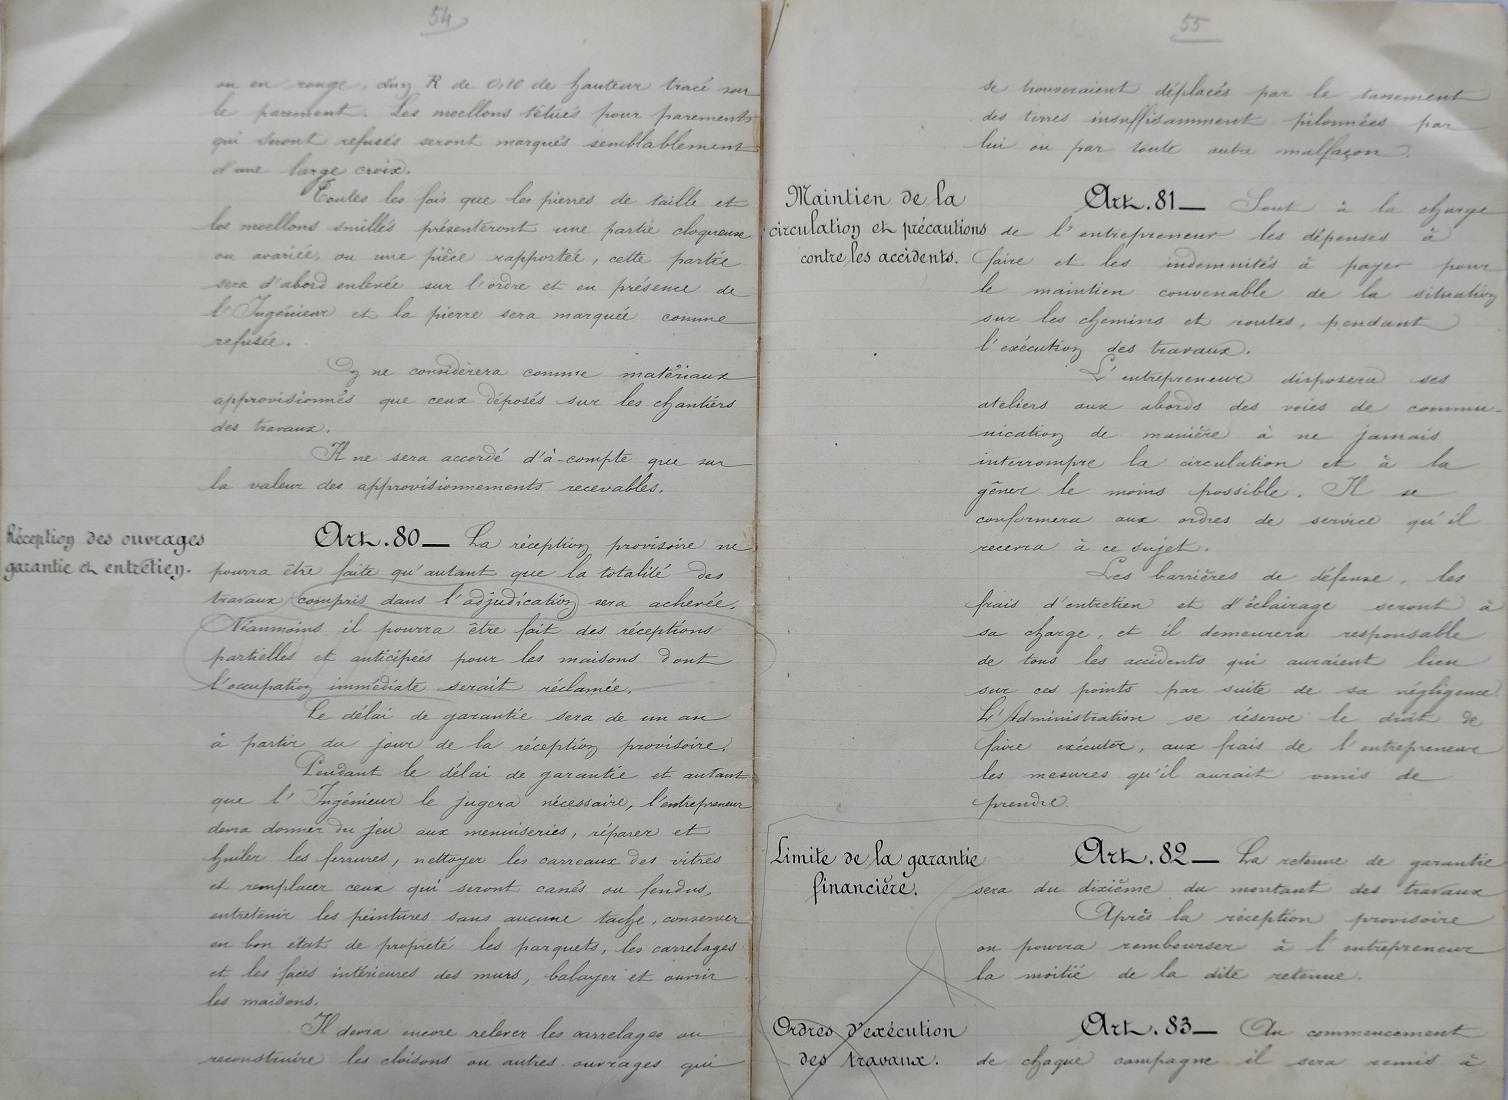 54
ou en rouge, d'un R de 0,10 de hauteur tracé sur
le parement. Les moellons têtués pour parements
qui seront refusés seront marqués semblablement
d'une large croix.
Toutes les fois que les pierres de taille et
les moellons smillés présenteront une partie cloqueuse
ou avariée, ou une pièce rapportée, cette partie
sera d'abord enlevée sur l'ordre et en présence de
l'Ingénieur et la pierre sera marquée comme
refusée.
On ne considérera comme matériaux
approvisionnés que ceux déposés sur les chantiers
des travaux.
Il ne sera accordé d'à-compte que sur
la valeur des approvisionnements recevables.
Réception des ouvrages
garantie et entretien.
Art. 80 — La réception provisoire ne
pourra être faite qu'autant que la totalité des
travaux compris dans l'adjudication sera achevée.
Néanmoins il pourra être fait des réceptions
partielles et anticipées pour les maisons dont
l'occupation immédiate serait réclamée.
Le délai de garantie sera de un an
à partir du jour de la réception provisoire.
Pendant le délai de garantie et autant
que l'Ingénieur le jugera nécessaire, l'entrepreneur
devra donner du jeu aux menuiseries, réparer et
huiler les ferrures, nettoyer les carreaux des vitres
et remplacer ceux qui seront cassés ou fendus,
entretenir les peintures sans aucune tache, conserver
en bon état de propreté les parquets, les carrelages
et les faces intérieures des murs, balayer et ouvrir
les maisons.
Il devra encore relever les carrelages ou
reconstruire les cloisons ou autres ouvrages qui
55
se trouveraient déplacés par le tassement
des terres insuffisamment pilonnées par
lui ou par toute autre malfaçon.
Maintien de la
circulation et précautions
contre les accidents.
Art. 81 — Sont à la charge
de l'entrepreneur les dépenses à
faire et les indemnités à payer pour
le maintien convenable de la situation
sur les chemins et routes, pendant
l'exécution des travaux.
L'entrepreneur disposera ses
ateliers aux abords des voies de commu-
nication de manière à ne jamais
interrompre la circulation et à la
gêner le moins possible. Il se
conformera aux ordres de service qu'il
recevra à ce sujet.
Les barrières de défense, les
frais d'entretien et d'éclairage seront à
sa charge, et il demeurera responsable
de tous les accidents qui auraient lieu
sur ces points par suite de sa négligence.
L'Administration se réserve le droit de
faire exécuter, aux frais de l'entrepreneur
les mesures qu'il aurait omis de
prendre.
Limite de la garantie
financière.
Art. 82 — La retenue de garantie
sera du dixième du montant des travaux
Après la réception provisoire
on pourra rembourser à l'entrepreneur
la moitié de la dite retenue.
Ordres d'exécution
des travaux.
Art. 83 — Au commencement
de chaque campagne il sera remis à